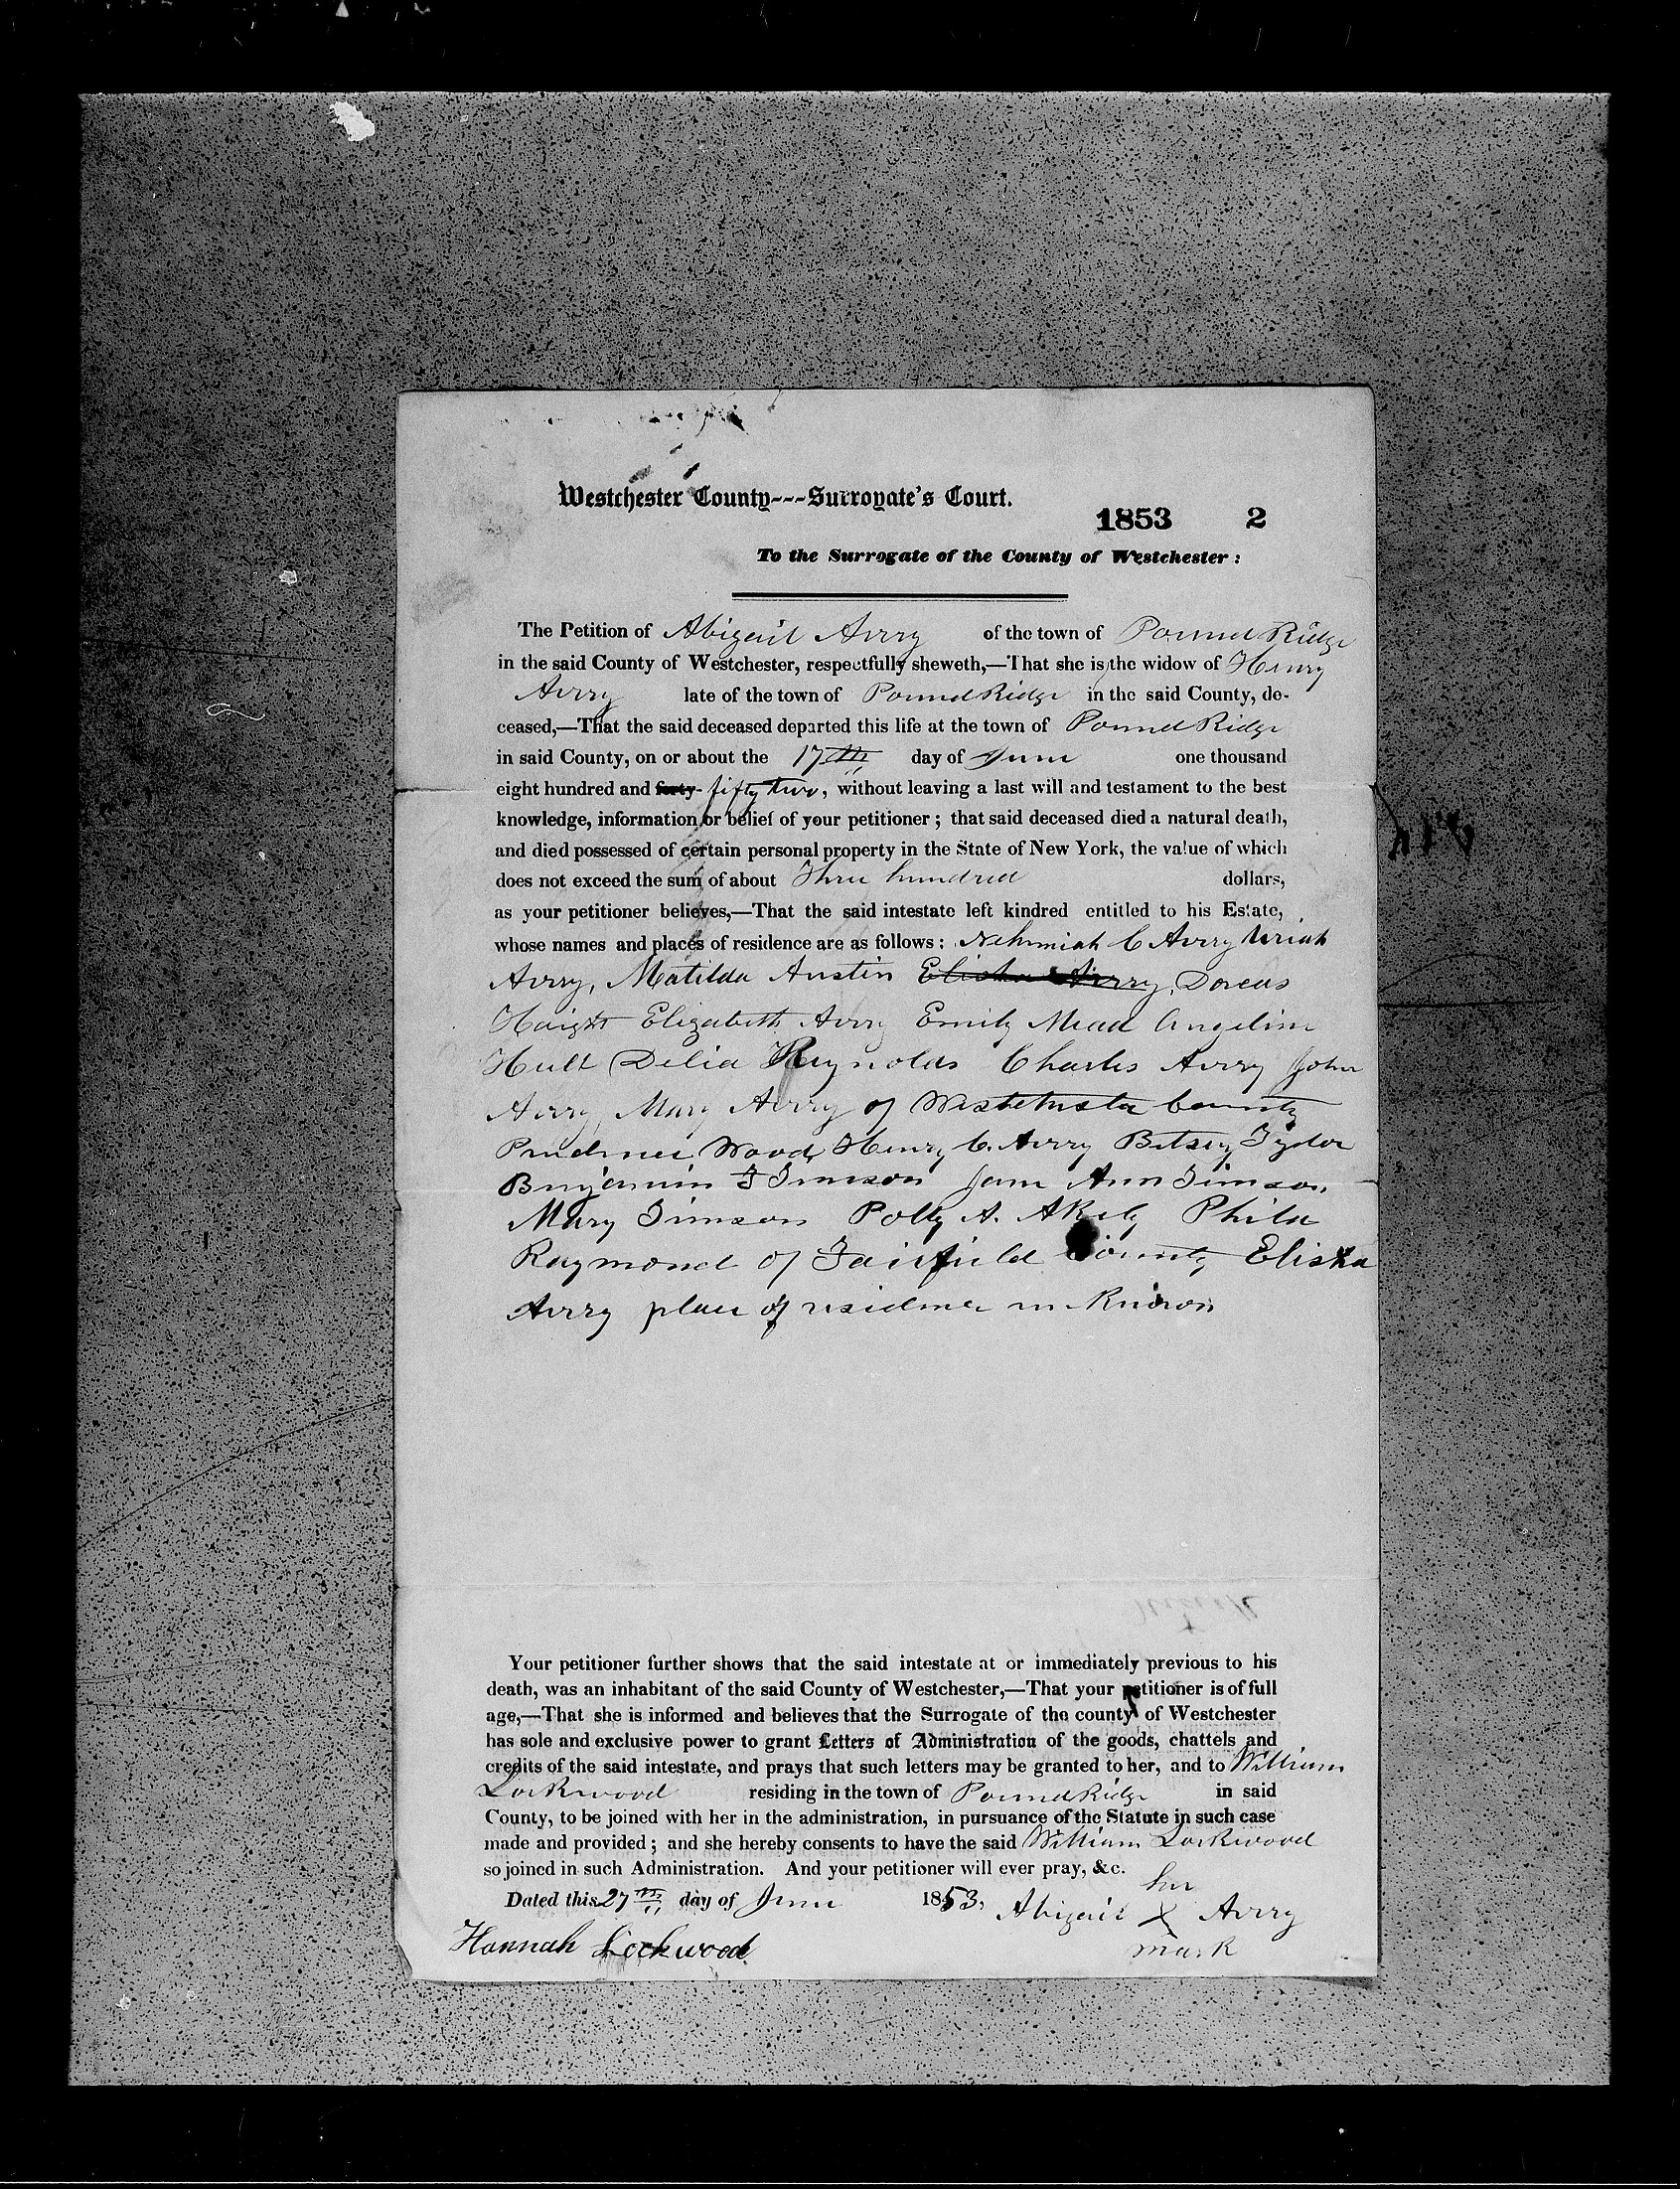 Westchester County---Surrogate's Court.
1853 2
To the Surrogate of the County of Westchester:
The Petition of Abigail Avery of the town of Pound Ridge
in the said County of Westchester, respectfully sheweth,—That she is the widow of Henry
Avery late of the town of Pound Ridge in the said County, de-
ceased,—That the said deceased departed this life at the town of Pound Ridge
in said County, on or about the 17th day of June one thousand
eight hundred and forty- fifty two, without leaving a last will and testament to the best
knowledge, information or belief of your petitioner; that said deceased died a natural death,
and died possessed of certain personal property in the State of New York, the value of which
does not exceed the sum of about Three hundred dollars,
as your petitioner believes,—That the said intestate left kindred entitled to his Estate,
whose names and places of residence are as follows: Nehemiah C Avery Uriah
Avery, Matilda Austin Elisha Avery, Dorcas
Haight Elizabeth Avery Emily Mead Angeline
Hull Delia Reynolds Charles Avery John
Avery, Mary Avery of Westchester County
Prudence Wood, Henry C. Avery Betsey Tyler
Benjamin T Timson Jane Ann Timson,
Mary Timson Polly A. Akely Phila
Raymond of Fairfield County Elisha
Avery place of residence un-known
Your petitioner further shows that the said intestate at or immediately previous to his
death, was an inhabitant of the said County of Westchester,—That your petitioner is of full
age,—That she is informed and believes that the Surrogate of the county of Westchester
has sole and exclusive power to grant Letters of Administration of the goods, chattels and
credits of the said intestate, and prays that such letters may be granted to her, and to William
Lockwood residing in the town of Pound Ridge in said
County, to be joined with her in the administration, in pursuance of the Statute in such case
made and provided; and she hereby consents to have the said William Lockwood
so joined in such Administration. And your petitioner will ever pray, &c.
her
Dated this 27th day of June 1853, Abigail X Avery
Hannah Lockwood mark